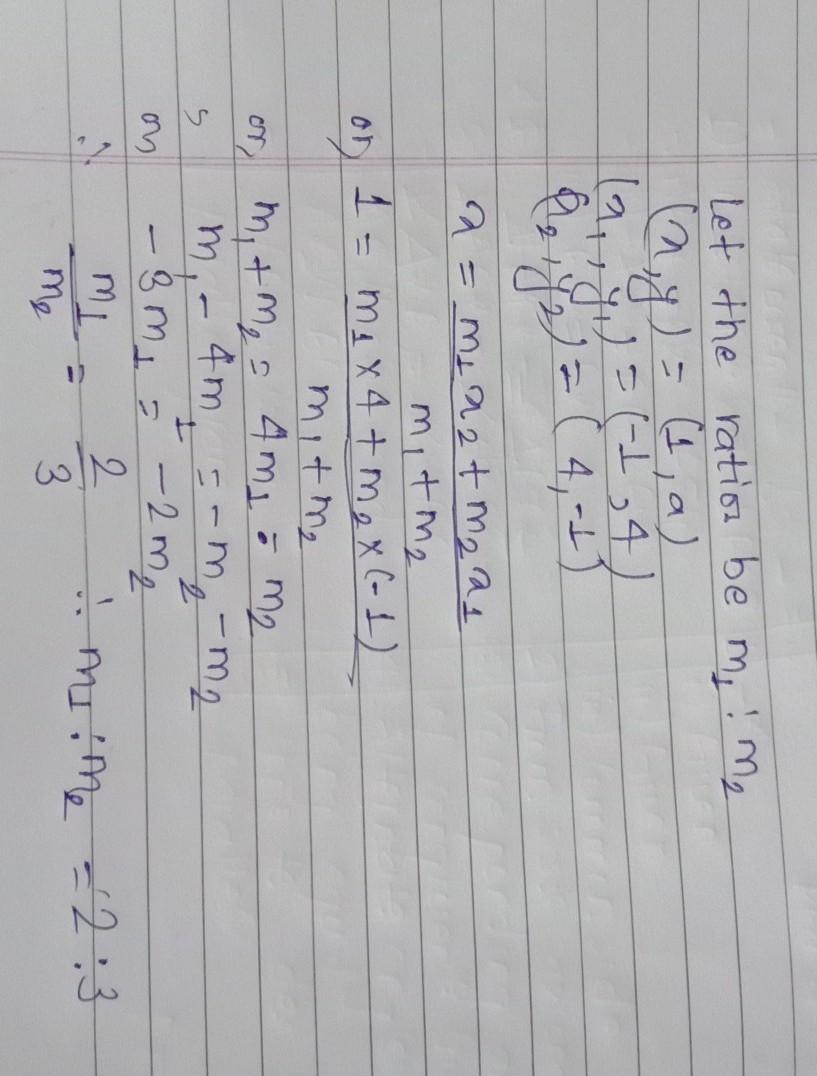 Let the ratios be m₁ : m₂
(x,y) = (1, a)
(x₁, y₁) = (-1, 4)
(x₂, y₂) = (4, -1)
x = m₁x₂ + m₂x₁
m₁ + m₂
or, 1 = m₁ × 4 + m₂ × (-1)
m₁ + m₂
or, m₁ + m₂ = 4m₁ - m₂
, m₁ - 4m₁ = - m₂ - m₂
or, -3m₁ = -2m₂
∴ m₁/m₂ = 2/3 ∴ m₁ : m₂ = 2 : 3